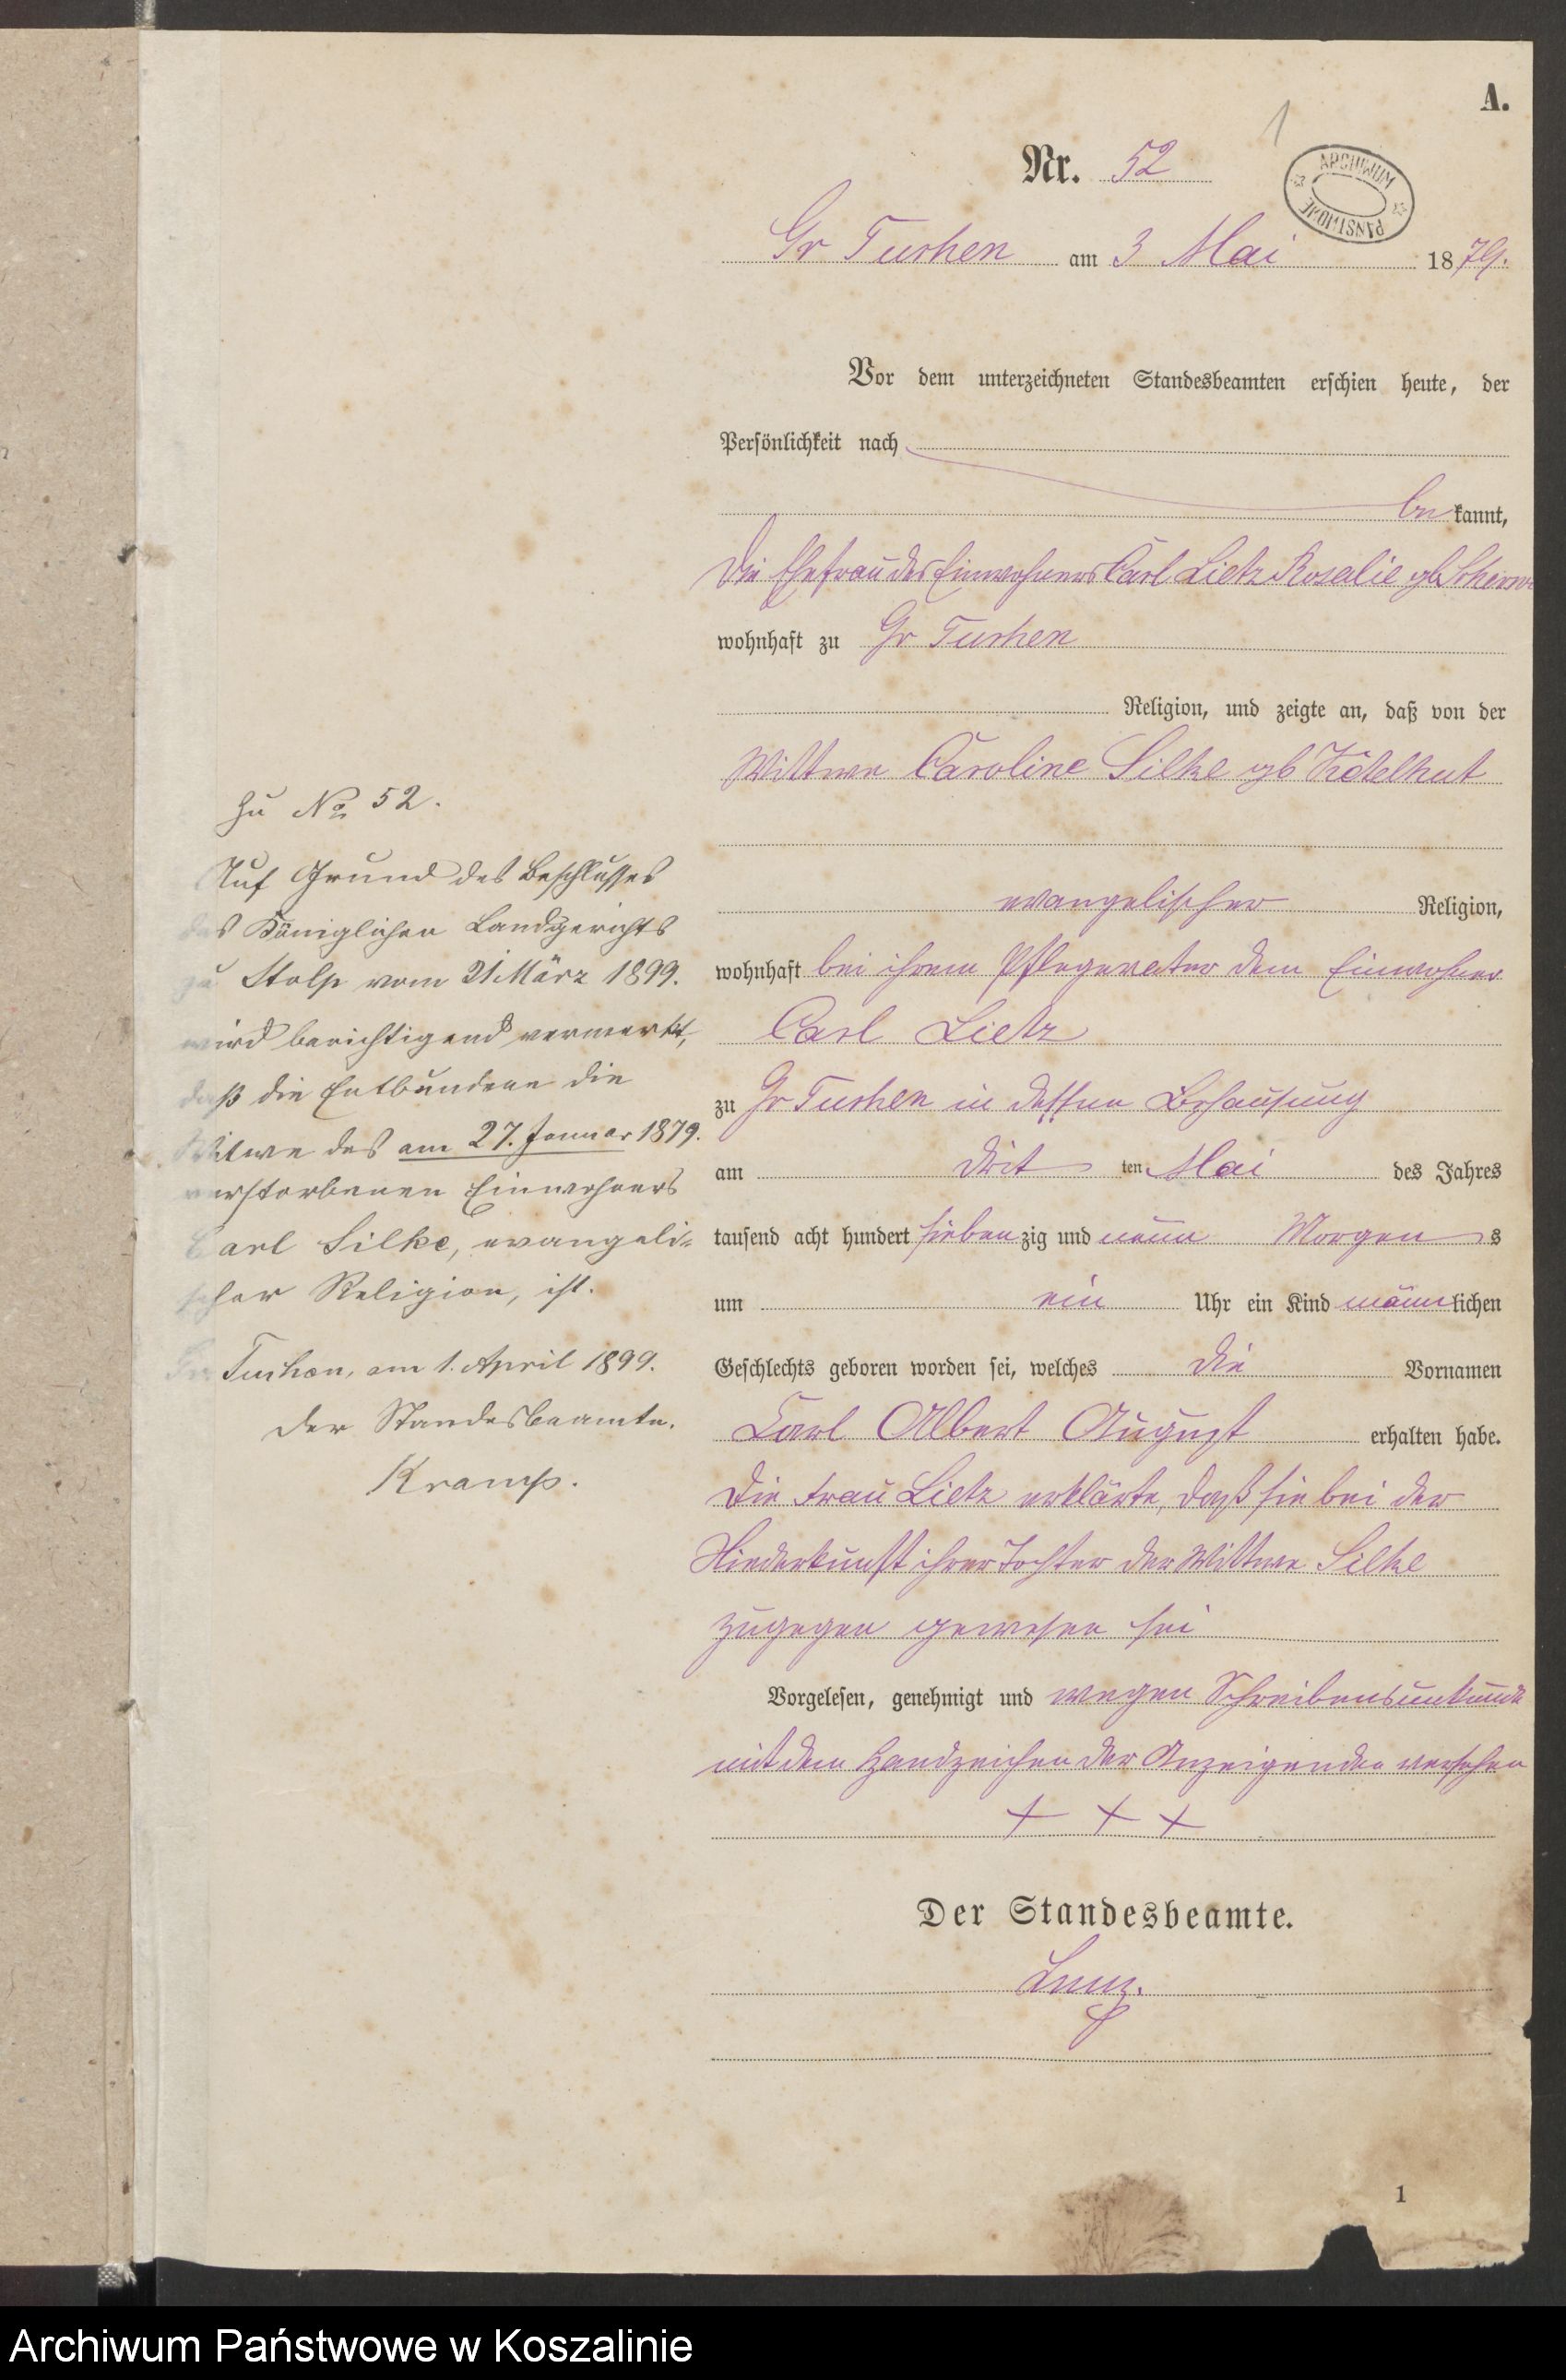 A.
1
Nr. 52
ARCHIWUM PAŃSTWOWE
Gr Tuchen am 3 Mai 1879.
Vor dem unterzeichneten Standesbeamten erschien heute, der
Persönlichkeit nach
bekannt,
die Ehefrau des Einwohners Carl Lietz Rosalie gb
wohnhaft zu Gr Tuchen
Religion, und zeigte an, daß von der
Wittwe Caroline Silke gb
evangelischer Religion,
wohnhaft bei ihrem Pflegevater dem Einwohner
Carl Lietz
zu Gr Tuchen in dessen Behausung
am drit ten Mai des Jahres
tausend acht hundert siebenzig und neun Morgens
um ein Uhr ein Kind männlichen
Geschlechts geboren worden sei, welches die Vornamen
Carl Albert August erhalten habe.
Die Frau Lietz erklärte, daß sie bei der
Niederkunft ihrer Tochter der Wittwe Silke
zugegen gewesen sei
Vorgelesen, genehmigt und wegen Schreibensunkunde
mit dem Handzeichen der Anzeigenden versehen
+ + +
Der Standesbeamte.
1
Zu No 52.
Auf Grund des Beschlusses
des Königlichen Landgerichts
zu Stolp vom 21 März 1899.
wird berichtigend vermerkt,
daß die Entbundene die
Witwe des am 27. Januar 1879.
verstorbenen Einwohners
Carl Silke, evangeli-
scher Religion, ist.
Gr. Tuchen, am 1. April 1899.
Der Standesbeamte.
Kramp.
Archiwum Państwowe w Koszalinie